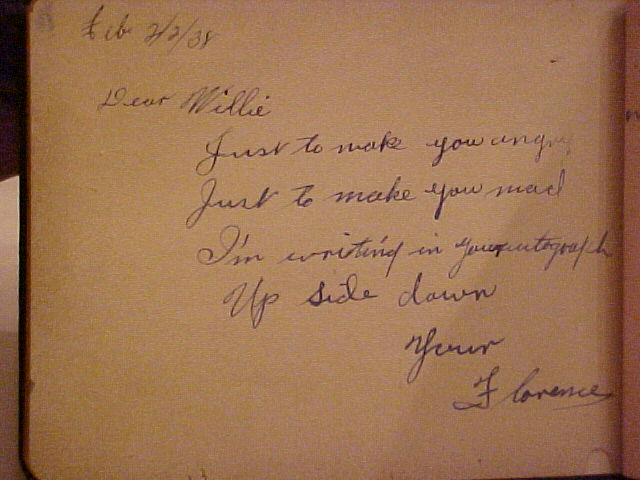 Feb 2/2/38
Dear Willie
Just to make you angry
Just to make you mad
I'm writing in your autograph
Up side down
Your
Florence